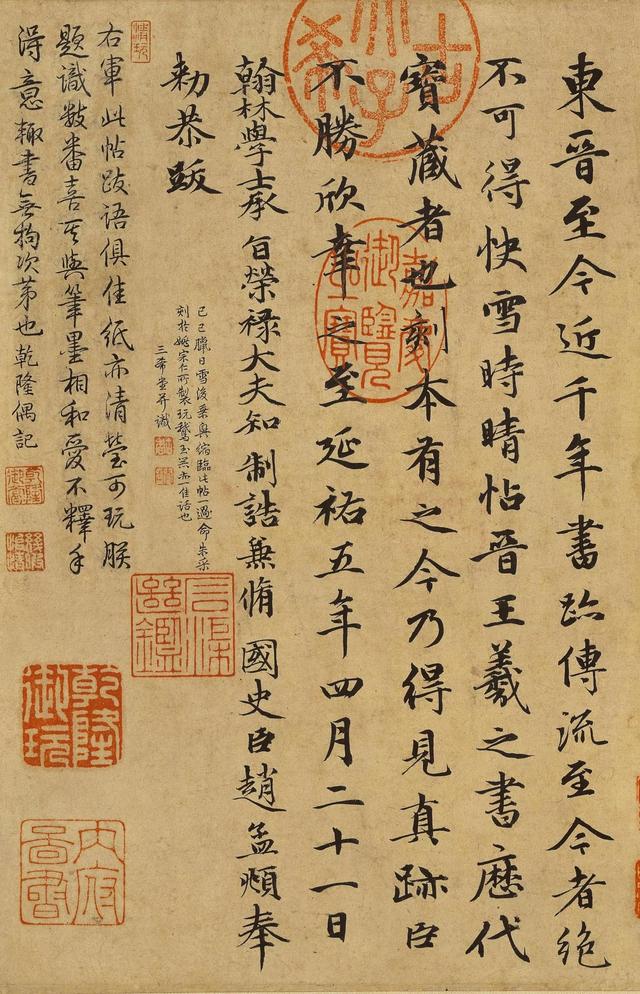 東晉至今近千年書跡傳流至今者絕
不可得快雪時晴帖晉王羲之書歷代
寶藏者也刻本有之今乃得見真跡臣
不勝欣幸之至延祐五年四月二十一日
翰林學士承旨榮祿大夫知制誥兼脩國史臣趙孟頫奉
勅恭跋
己巳臘日雪後乘興縮臨此帖一過命朱采
刻於姚宗仁所製玩鵞玉器亦一佳話也
三希堂并識
右軍此帖跋語俱佳紙亦清瑩可玩朕
題識數番喜其與筆墨相和愛不釋手
得意輒書無拘次第也乾隆偶記
嘉慶御覽之寶
乾隆御玩
內府圖書